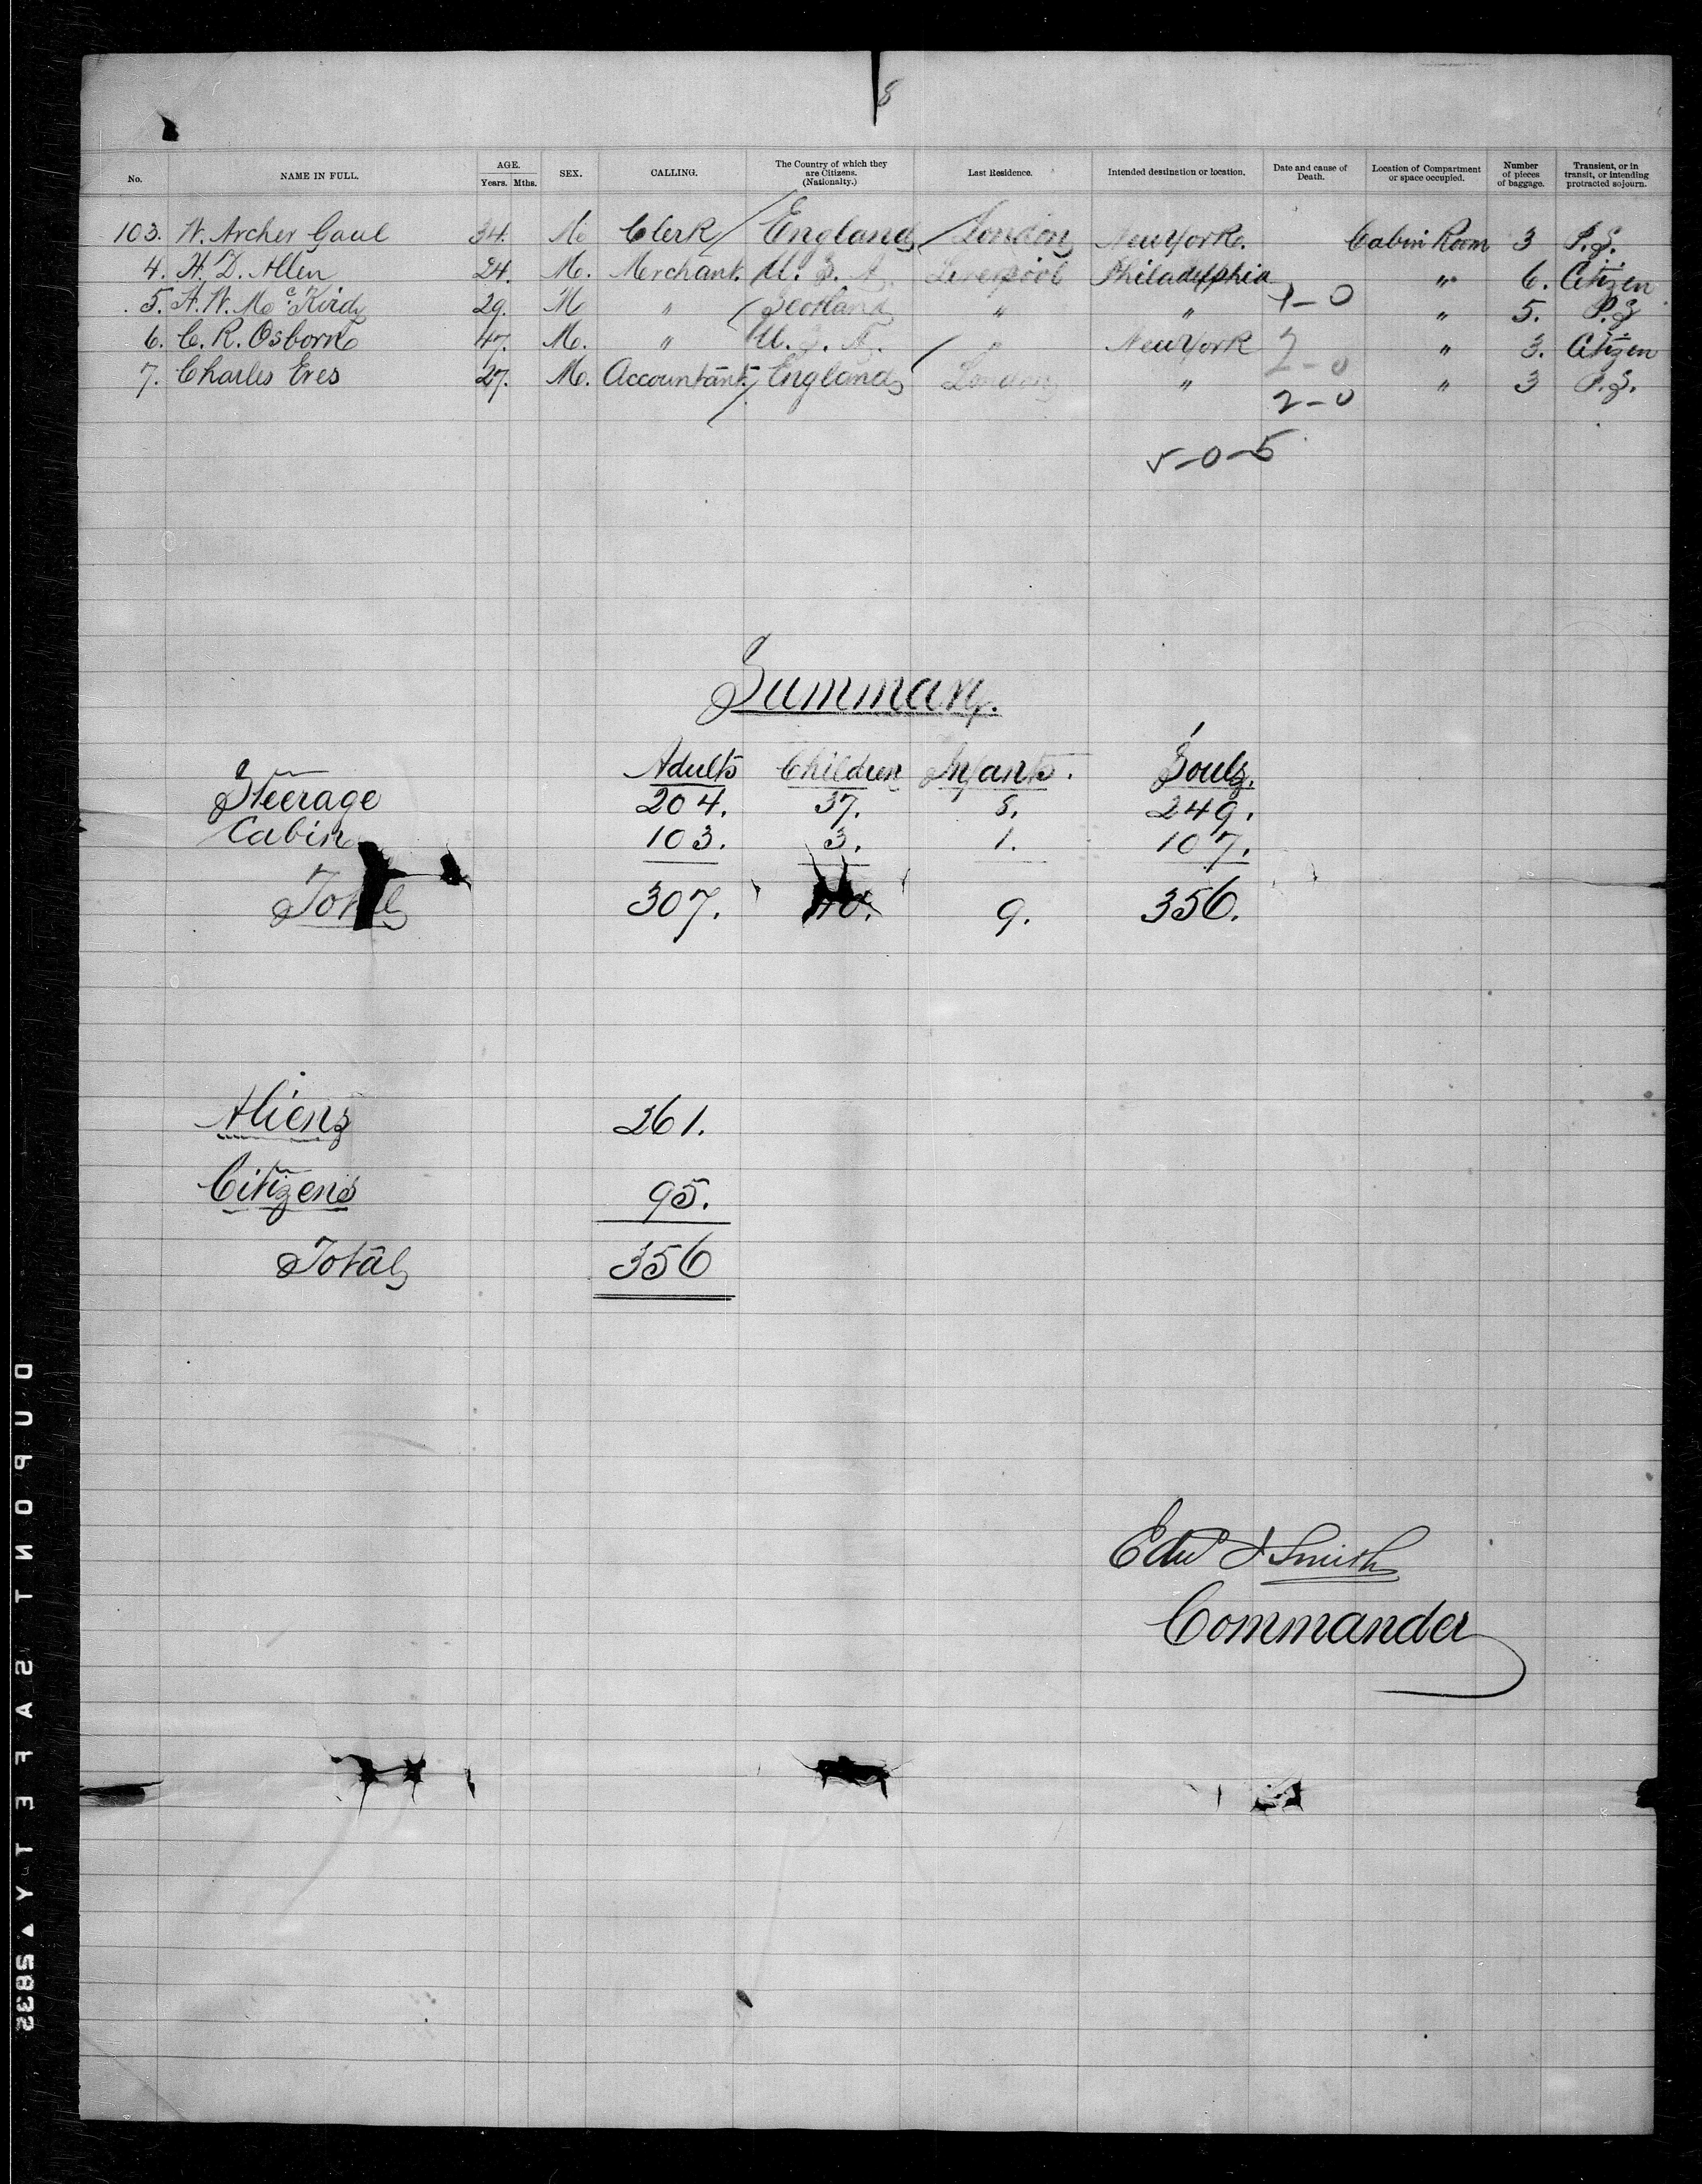 8
No. NAME IN FULL. AGE. Years. Mths. SEX. CALLING. The Country of which they are Citizens. (Nationalty.) Last Residence. Intended destination or location. Date and cause of Death. Location of Compartment or space occupied. Number of pieces of baggage. Transient, or in transit, or intending protracted sojourn.
103. W. Archer Gaul 34. M. Clerk England London New York. Cabin Room 3 P.S.
4. H. D. Allen 24. M. Merchant. U. S. A. Liverpool Philadelphia " 6. Citizen
5. H. W. McKirdy 29. M " Scotland " " 1-0 " 5. P.S
6. C. R. Osborn 47. M. " U. S. A. " New York 2-0 " 3. Citizen
7. Charles Eves 27. M. Accountant England London " 2-0 " 3 P.S.
5-0-5
Summary.
Adults Children Infants. Souls.
Steerage 204. 37. 8. 249.
Cabin 103. 3. 1. 107.
Total 307. 40. 9. 356.
Aliens 261.
Citizens 95.
Total 356
Edw J Smith
Commander
DUPONT SAFETY 5832